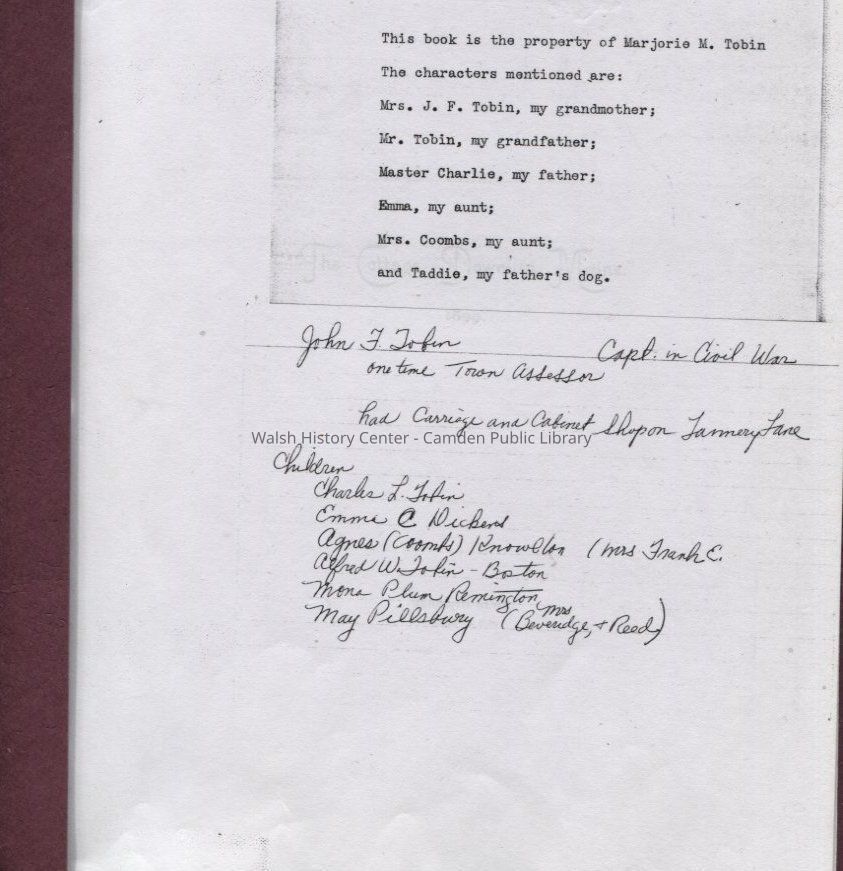 This book is the property of Marjorie M. Tobin
The characters mentioned are:
Mrs. J. F. Tobin, my grandmother;
Mr. Tobin, my grandfather;
Master Charlie, my father;
Emma, my aunt;
Mrs. Coombs, my aunt;
and Taddie, my father's dog.
John F. Tobin Capt. in Civil War
one time Town Assessor
had Carriage and Cabinet Shop on Tannery Lane
Walsh History Center - Camden Public Library
Children
Charles L. Tobin
Emma C Dickens
Agnes (Coombs) Knowlton (Mrs Frank E.
Alfred W. Tobin - Boston
Mona Plum Remington
May Pillsbury (Mrs Beveridge, + Reed)